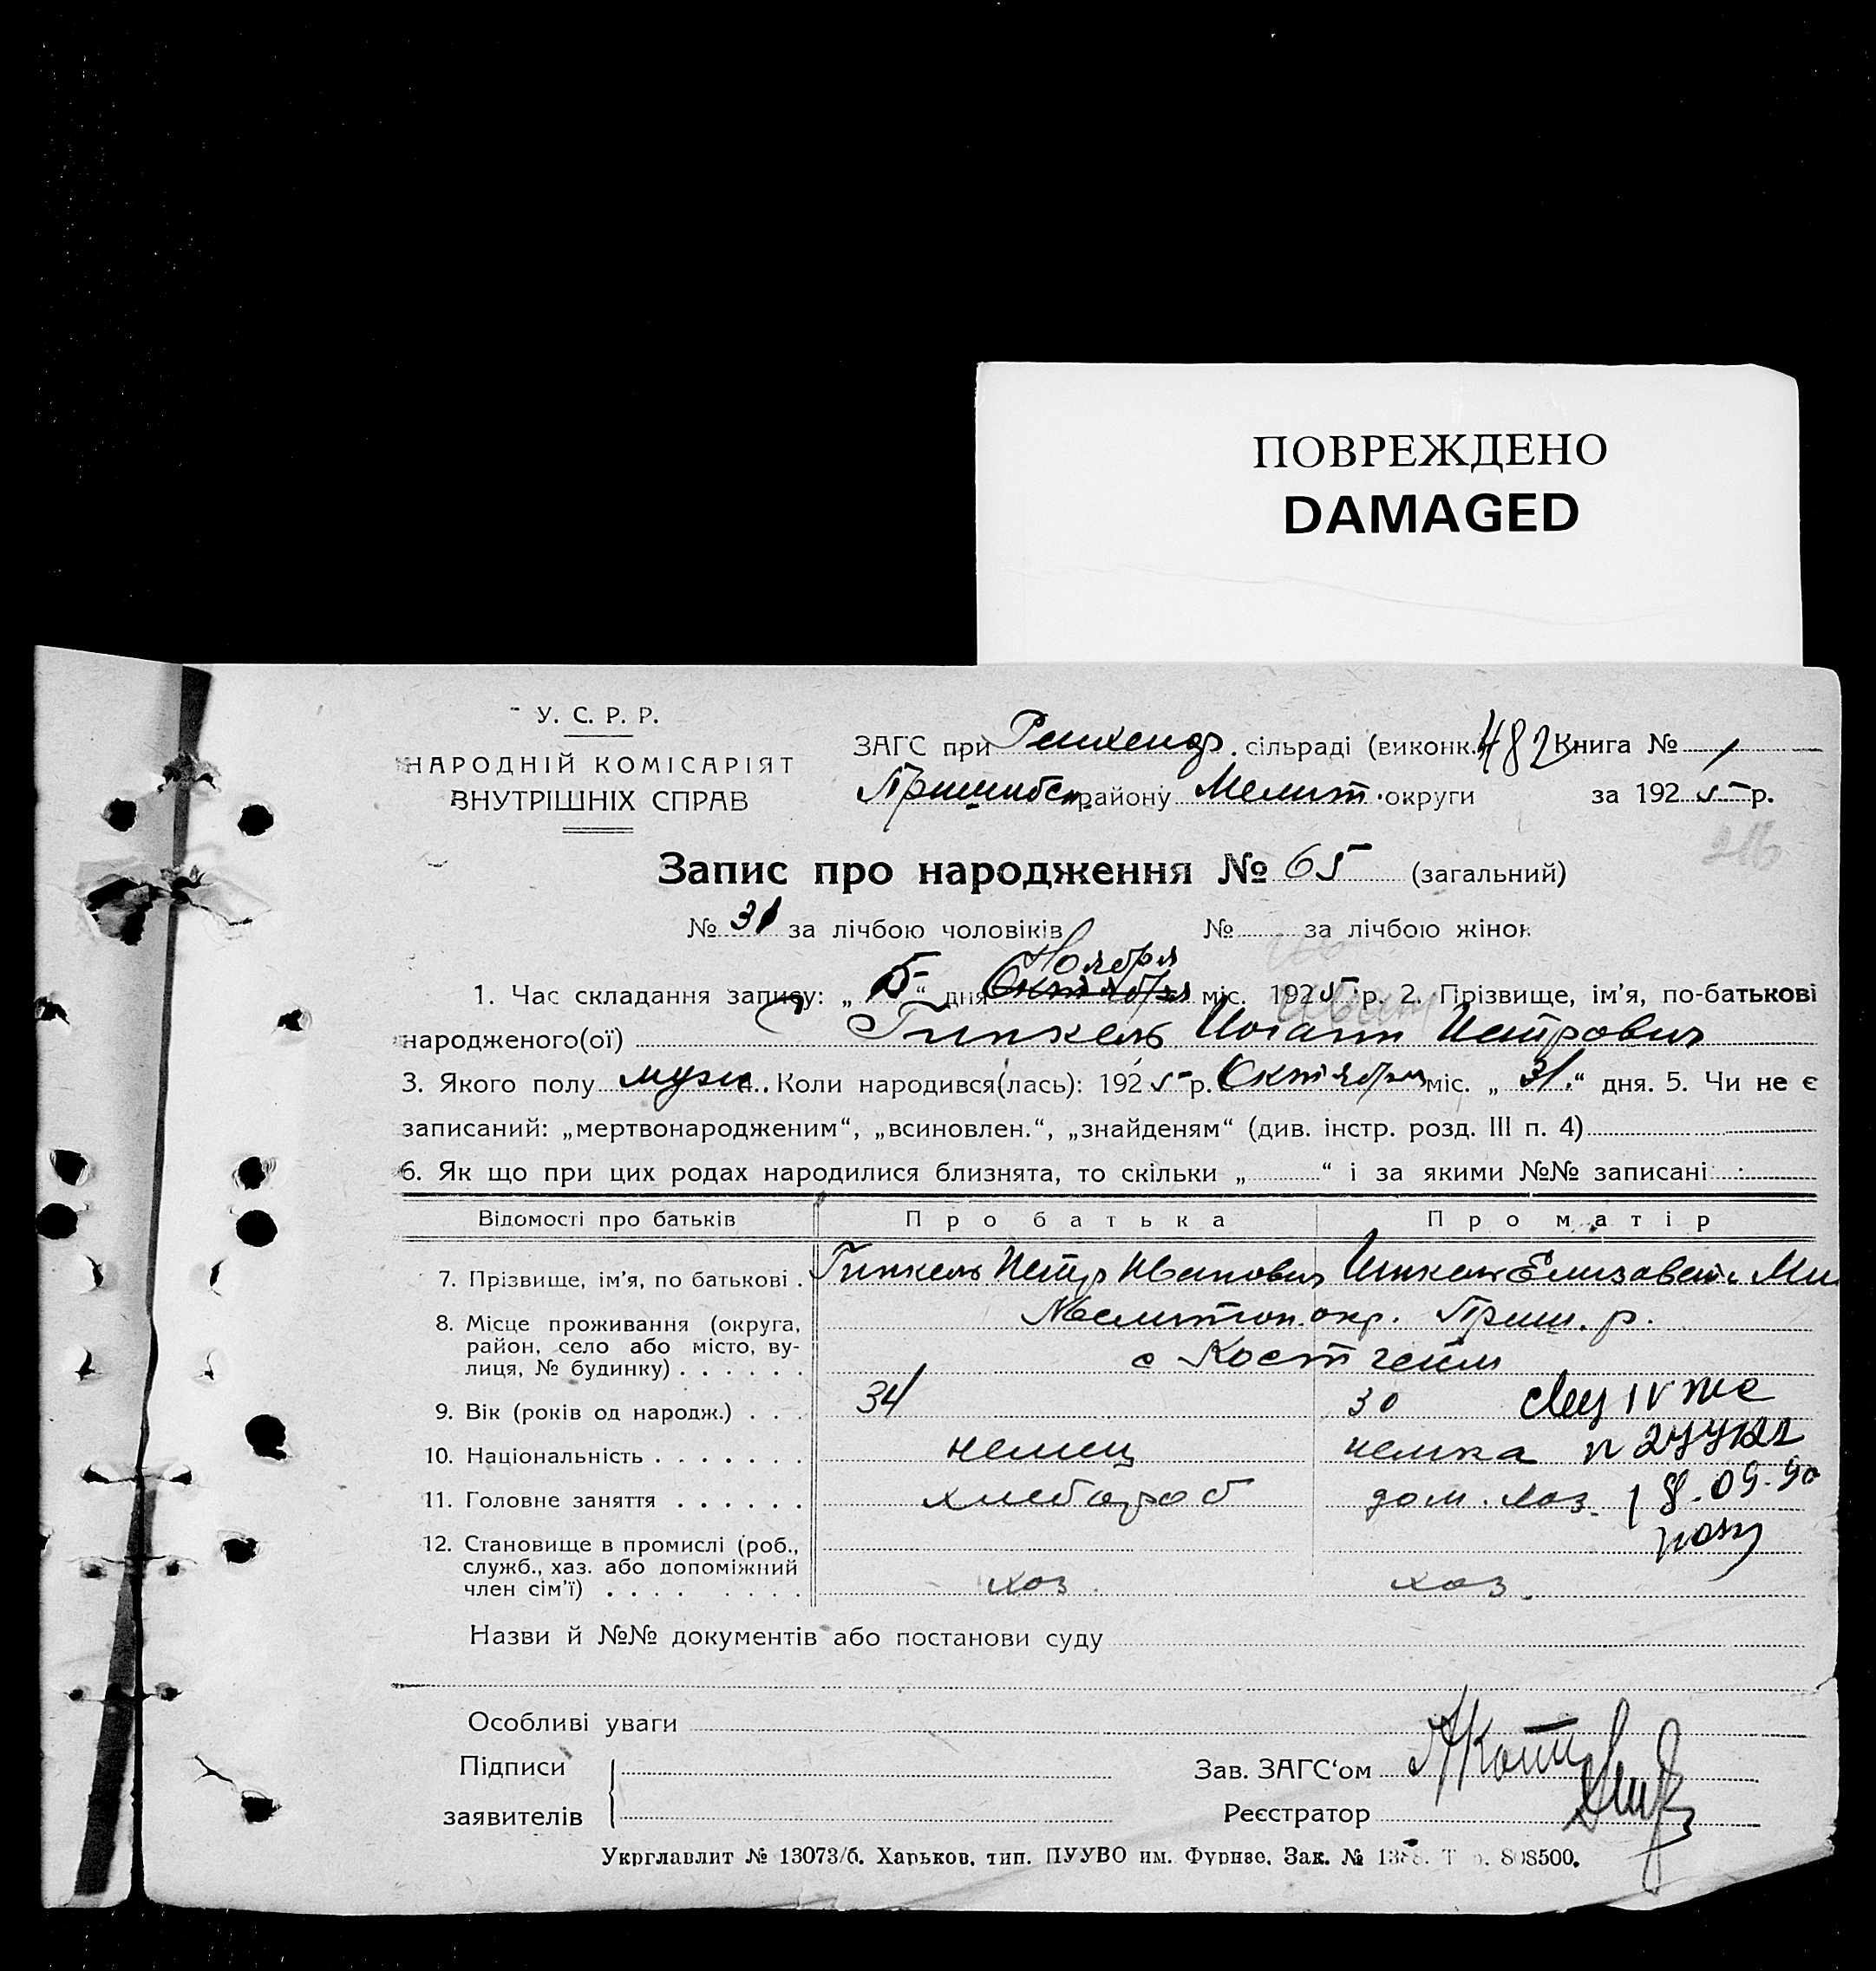 ПОВРЕЖДЕНО
DAMAGED
У. С. Р. Р.
НАРОДНІЙ КОМІСАРІЯТ
ВНУТРІШНІХ СПРАВ
ЗАГС при Рейхенф. сільраді (виконк. 482 Книга № 1
Пришибск. району Мелит. округи за 1925 р.
216
Запис про народження № 65 (загальний)
№ 31 за лічбою чоловіків № за лічбою жінок
Ноября
1. Час складання запису: „5“ дня Октября міс. 1925 р. 2. Прізвище, ім’я, по-батькові
народженого(ої) Гинкель Иоганн Петрович
3. Якого полу муж. 4. Коли народився(лась): 1925 р. Октября міс. „31.“ дня. 5. Чи не є
записаний: „мертвонародженим“, „всиновлен.“, „знайденям“ (див. інстр. розд. III п. 4)
6. Як що при цих родах народилися близнята, то скільки „ “ і за якими №№ записані
Відомості про батьків Про батька Про матір
7. Прізвище, ім’я, по батькові . Гинкель Петр Иванович Гинкель Елизавета Ми
8. Місце проживання (округа, район, село або місто, вулиця, № будинку) . . . . . . Мелитоп. окр. Приш. р.
с Костгейм
9. Вік (років од народж.) . . . 34 30
10. Національність . . . . . . . немец немка
11. Головне заняття . . . . . . хлебороб дом. хоз. 18.09.90
12. Становище в промислі (роб., служб., хаз. або допоміжний член сім’ї) . . . . . . . . хоз. хоз.
Назви й №№ документів або постанови суду
Особливі уваги
Підписи
заявителів
Зав. ЗАГС‘ом
Реєстратор
Укрглавлит № 13073/б. Харьков, тип. ПУУВО им. Фрунзе. Зак. № 808500.